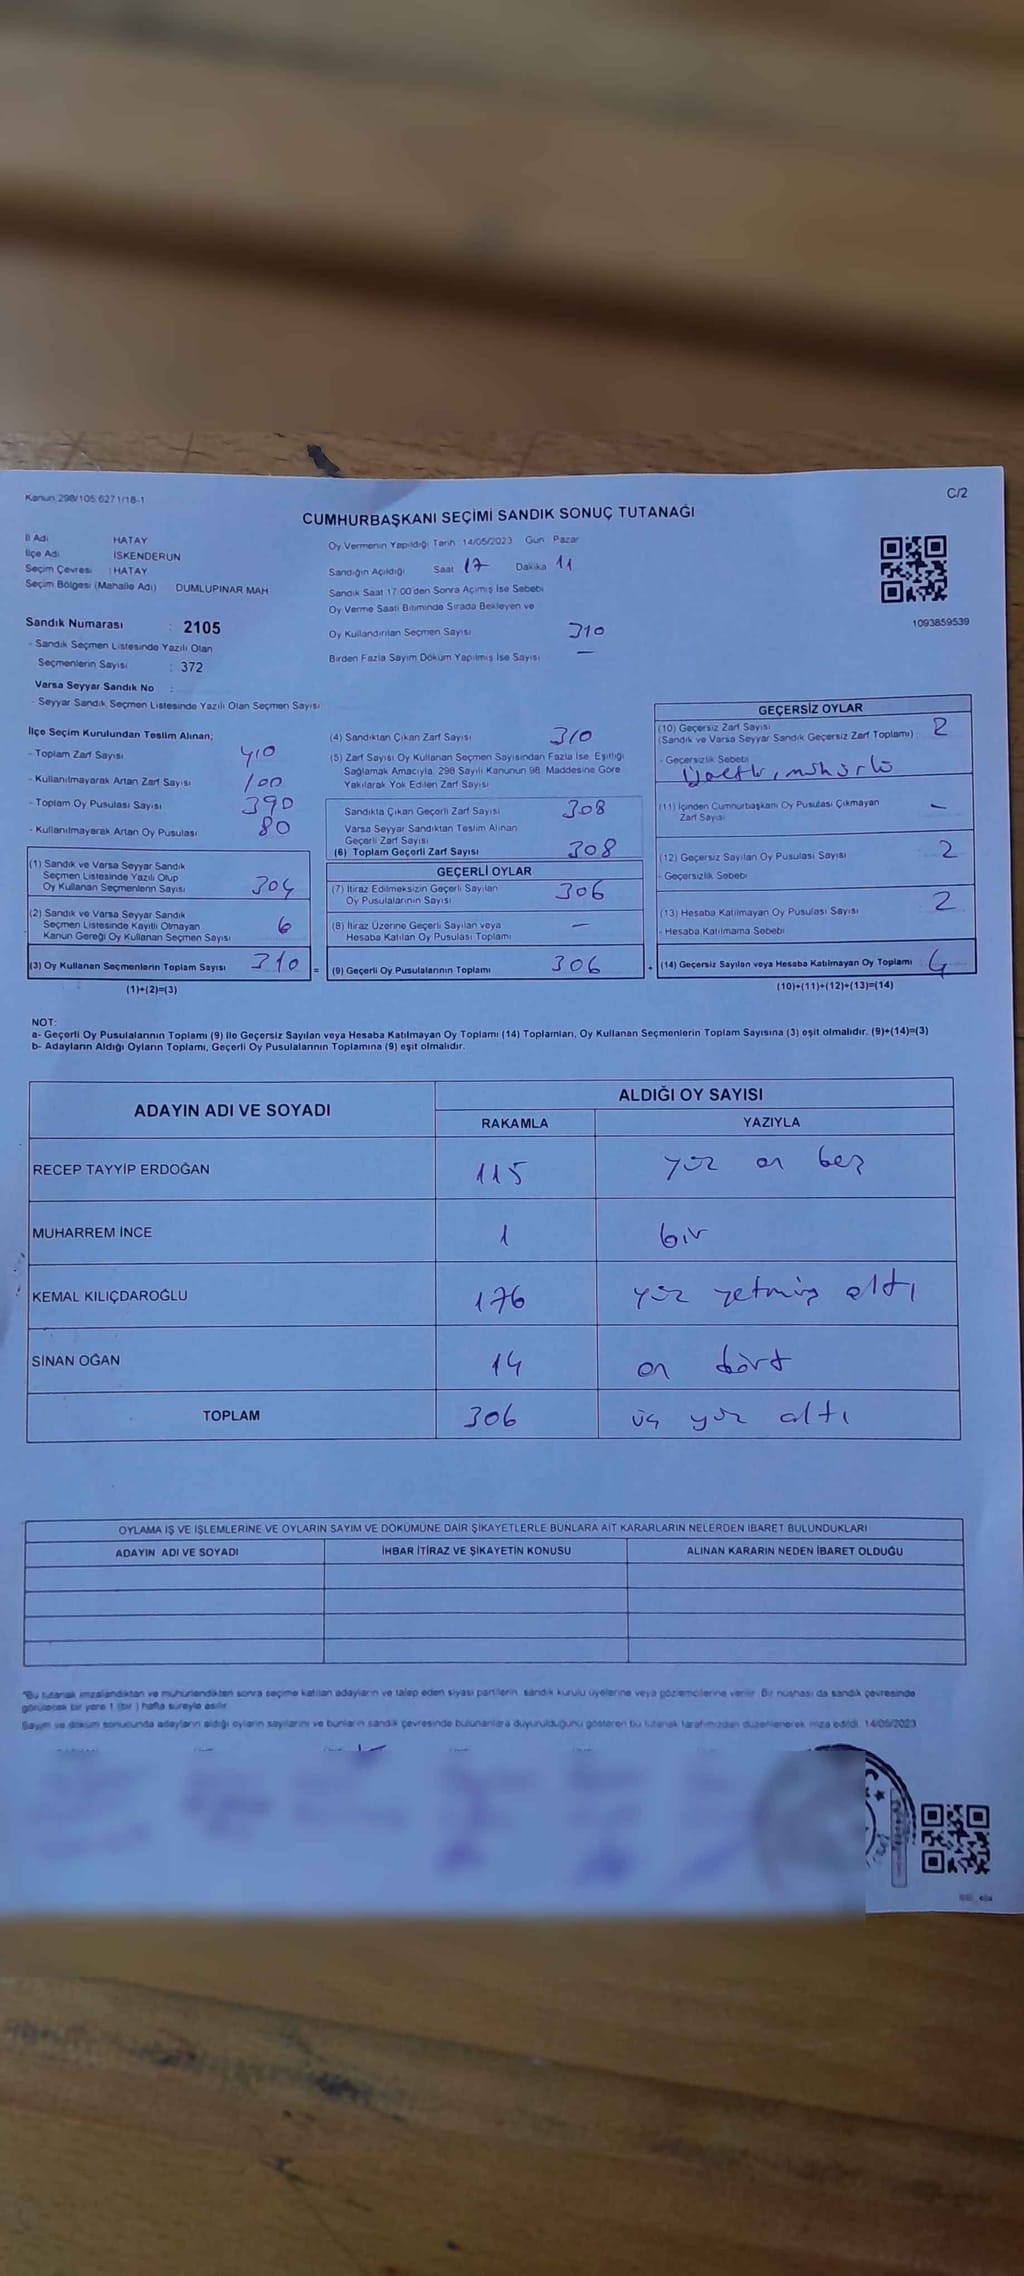 Kanun 298/105 6271/18-1
C/2
CUMHURBAŞKANI SEÇİMİ SANDIK SONUÇ TUTANAĞI
İl Adı HATAY
İlçe Adı İSKENDERUN
Seçim Çevresi : HATAY
Seçim Bölgesi (Mahalle Adı) DUMLUPINAR MAH
Sandık Numarası : 2105
- Sandık Seçmen Listesinde Yazılı Olan
Seçmenlerin Sayısı : 372
Varsa Seyyar Sandık No :
- Seyyar Sandık Seçmen Listesinde Yazılı Olan Seçmen Sayısı
Oy Vermenin Yapıldığı Tarih 14/05/2023 Gün Pazar
Sandığın Açıldığı Saat 17 Dakika 11
Sandık Saat 17 00'den Sonra Açılmış İse Sebebi
Oy Verme Saati Bitiminde Sırada Bekleyen ve
Oy Kullandırılan Seçmen Sayısı 310
Birden Fazla Sayım Döküm Yapılmış İse Sayısı —
1093859539
İlçe Seçim Kurulundan Teslim Alınan;
- Toplam Zarf Sayısı 410
- Kullanılmayarak Artan Zarf Sayısı 100
- Toplam Oy Pusulası Sayısı 390
- Kullanılmayarak Artan Oy Pusulası 80
(1) Sandık ve Varsa Seyyar Sandık
Seçmen Listesinde Yazılı Olup
Oy Kullanan Seçmenlerin Sayısı 304
(2) Sandık ve Varsa Seyyar Sandık
Seçmen Listesinde Kayıtlı Olmayan
Kanun Gereği Oy Kullanan Seçmen Sayısı 6
(3) Oy Kullanan Seçmenlerin Toplam Sayısı 310 =
(1)+(2)=(3)
(4) Sandıktan Çıkan Zarf Sayısı 310
(5) Zarf Sayısı Oy Kullanan Seçmen Sayısından Fazla İse Eşitliği
Sağlamak Amacıyla, 298 Sayılı Kanunun 98. Maddesine Göre
Yakılarak Yok Edilen Zarf Sayısı
Sandıkta Çıkan Geçerli Zarf Sayısı 308
Varsa Seyyar Sandıktan Teslim Alınan
Geçerli Zarf Sayısı
(6) Toplam Geçerli Zarf Sayısı 308
GEÇERLİ OYLAR
(7) İtiraz Edilmeksizin Geçerli Sayılan
Oy Pusulalarının Sayısı 306
(8) İtiraz Üzerine Geçerli Sayılan veya
Hesaba Katılan Oy Pusulası Toplamı —
(9) Geçerli Oy Pusulalarının Toplamı 306 +
GEÇERSİZ OYLAR
(10) Geçersiz Zarf Sayısı
(Sandık ve Varsa Seyyar Sandık Geçersiz Zarf Toplamı) : 2
- Geçersizlik Sebebi
mühürlü
(11) İçinden Cumhurbaşkanı Oy Pusulası Çıkmayan
Zarf Sayısı —
(12) Geçersiz Sayılan Oy Pusulası Sayısı 2
- Geçersizlik Sebebi
(13) Hesaba Katılmayan Oy Pusulası Sayısı 2
- Hesaba Katılmama Sebebi
(14) Geçersiz Sayılan veya Hesaba Katılmayan Oy Toplamı 4
(10)+(11)+(12)+(13)=(14)
NOT:
a- Geçerli Oy Pusulalarının Toplamı (9) ile Geçersiz Sayılan veya Hesaba Katılmayan Oy Toplamı (14) Toplamları, Oy Kullanan Seçmenlerin Toplam Sayısına (3) eşit olmalıdır. (9)+(14)=(3)
b- Adayların Aldığı Oyların Toplamı, Geçerli Oy Pusulalarının Toplamına (9) eşit olmalıdır.
ADAYIN ADI VE SOYADI
ALDIĞI OY SAYISI
RAKAMLA YAZIYLA
RECEP TAYYİP ERDOĞAN 115 yüz on beş
MUHARREM İNCE 1 bir
KEMAL KILIÇDAROĞLU 176 yüz yetmiş altı
SİNAN OĞAN 14 on dört
TOPLAM 306 üç yüz altı
OYLAMA İŞ VE İŞLEMLERİNE VE OYLARIN SAYIM VE DÖKÜMÜNE DAİR ŞİKAYETLERLE BUNLARA AİT KARARLARIN NELERDEN İBARET BULUNDUKLARI
ADAYIN ADI VE SOYADI İHBAR İTİRAZ VE ŞİKAYETİN KONUSU ALINAN KARARIN NEDEN İBARET OLDUĞU
*Bu tutanak imzalandıktan ve mühürlendikten sonra seçime katılan adayların ve talep eden siyasi partilerin, sandık kurulu üyelerine veya gözlemcilerine verilir. Bir nüshası da sandık çevresinde
görülecek bir yere 1 (bir ) hafta süreyle asılır.
Sayım ve döküm sonucunda adayların aldığı oyların sayılarını ve bunların sandık çevresinde bulunanlara duyurulduğunu gösteren bu tutanak tarafımızdan düzenlenerek imza edildi. 14/05/2023